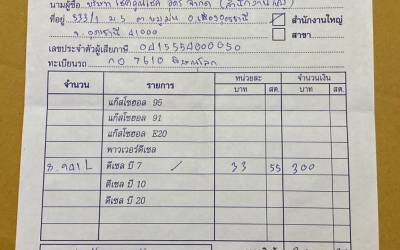 นามผู้ซื้อ บริษัท โชคอุดมโชค อุดร จำกัด (สำนักงานใหญ่)
ที่อยู่ 533/1 ม.5 ต. อ.เมืองอุดรธานี
จ.อุดรธานี 41000
สำนักงานใหญ่
สาขา
เลขประจำตัวผู้เสียภาษี 0415554000050
ทะเบียนรถ กอ 7610 พิษณุโลก
จำนวน รายการ หน่วยละ จำนวนเงิน
บาท สต. บาท สต.
แก๊สโซฮอล 95
แก๊สโซฮอล 91
แก๊สโซฮอล E20
พาวเวอร์ดีเซล
8.941 L ดีเซล บี 7 / 33 55 300
ดีเซล บี 10
ดีเซล บี 20